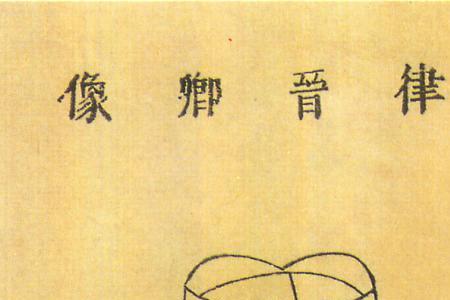 律晉卿像